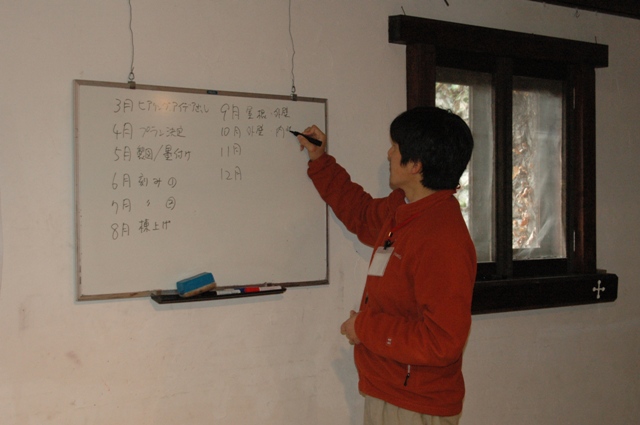 3月 ヒアリング アイデア出し
4月 プラン決定
5月 製図/墨付け
6月 刻み①
7月 〃 ②
8月 棟上げ
9月 屋根 外壁
10月 外壁 内
11月
12月